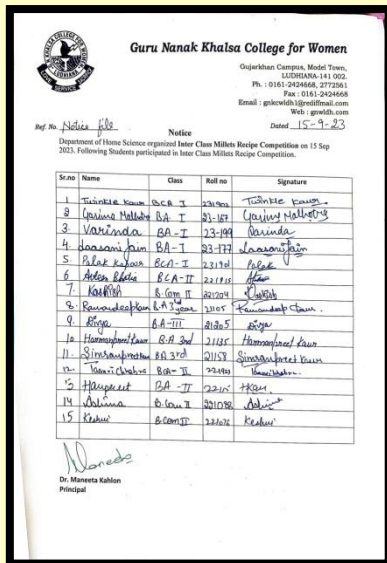 KHALSA COLLEGE FOR WOMEN
LUDHIANA
Guru Nanak Khalsa College for Women
Gujarkhan Campus, Model Town,
LUDHIANA-141 002.
Ph. : 0161-2424668, 2772561
Fax : 0161-2424668
Email : gnkcwldh1@rediffmail.com
Web : gnwldh.com
Ref. No. Notice file
Dated 15-9-23
Notice
Department of Home Science organized Inter Class Millets Recipe Competition on 15 Sep
2023. Following Students participated in Inter Class Millets Recipe Competition.
Sr.no Name Class Roll no Signature
1 Twinkle Kaur BCA I 231902 Twinkle Kaur
2 Garima Malhotra BA I 23-167
3. Varinda BA-I 23-199 Varinda
4. Laasani Jain BA-I 23-177 Laasani Jain
5. Palak Kapoor BCA-I 23190 Palak
6 Bhatia BCA-II 221915
7. Kashish B.Com II 221204 Kashish
8. Ramandeep Kaur B.A 3rd year 21105 Ramandeep Kaur
9. Divya B.A-III 21205 Divya
10 Harmanpreet Kaur B.A 3rd 21135 Harmanpreet Kaur
11. Simranpreet Kaur BA 3rd 21158 Simranpreet Kaur
12. BCA-II
13 Harpreet BA-II 2215 HKaur
14 Ashima B.Com II
15 Keshvi B.Com II 221076 Keshvi
Maneeta
Dr. Maneeta Kahlon
Principal